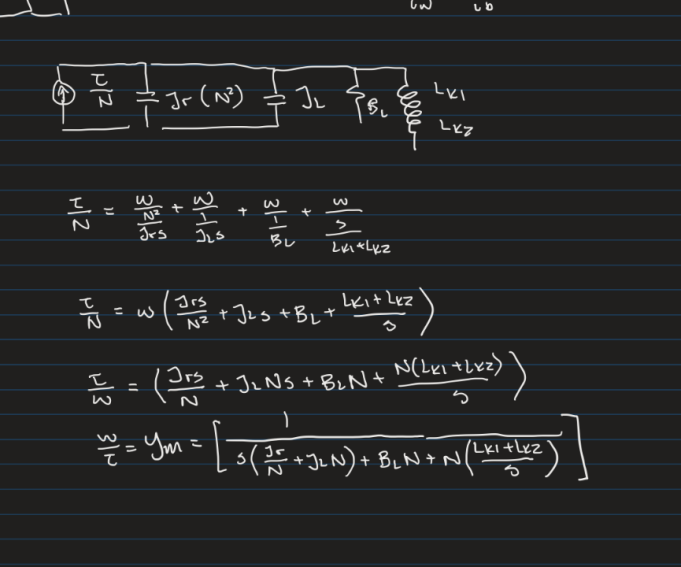 τ/N Jr (N²) J_L B_L L_K1
L_K2
τ/N = w/(N²/Jrs) + w/(1/J_Ls) + w/(1/B_L) + w/(s/(L_K1+L_K2))
τ/N = w ( Jrs/N² + J_L s + B_L + (L_K1 + L_K2)/s )
τ/w = ( Jrs/N + J_L N s + B_L N + N(L_K1 + L_K2)/s )
w/τ = y_m = [ 1/( s( Jr/N + J_L N ) + B_L N + N( (L_K1 + L_K2)/s ) ) ]